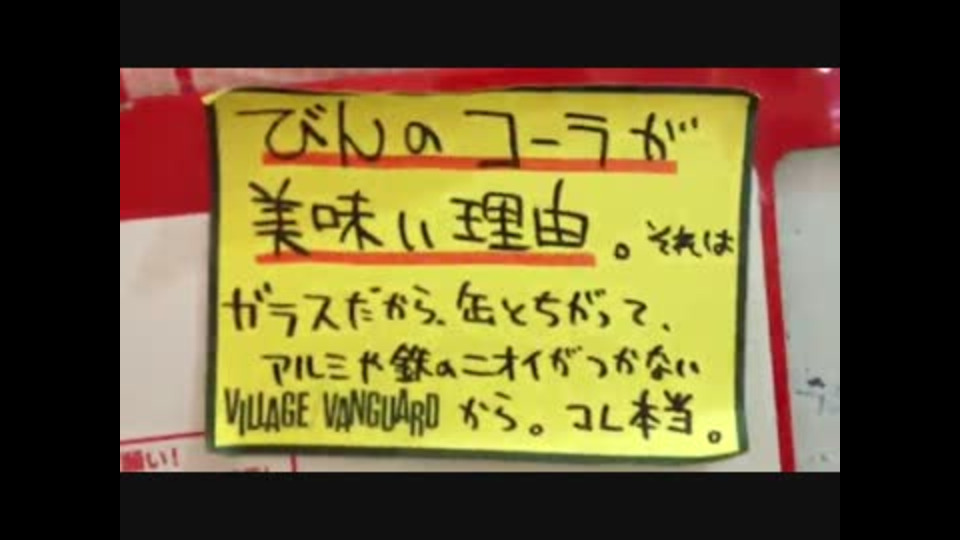 びんのコーラが
美味い理由。それは
ガラスだから、缶とちがって、
アルミや鉄のニオイがつかない
VILLAGE VANGUARD から。コレ本当。
願い!